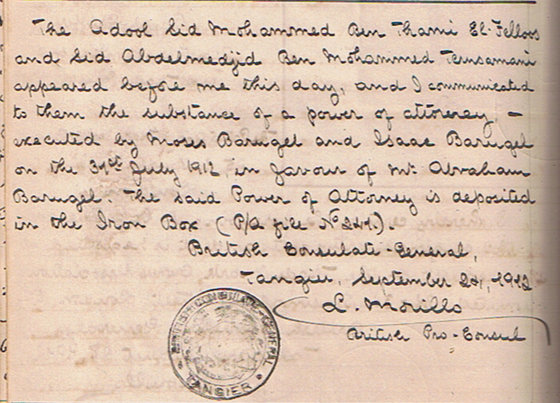 The Adool Sid Mohammed Ben Thami El-Fellous
and Sid Abdelmedjid Ben Mohammed Temsamani
appeared before me this day, and I communicated
to them the substance of a power of attorney, –
executed by Moses Barugel and Isaac Barugel
on the 31st July 1912 in favour of Mr. Abraham
Barugel. The said Power of Attorney is deposited
in the Iron Box (P/a file No 241.)
British Consulate-General,
Tangier, September 24, 1912
L. Morillo
British Pro-Consul
BRITISH CONSULATE-GENERAL
TANGIER